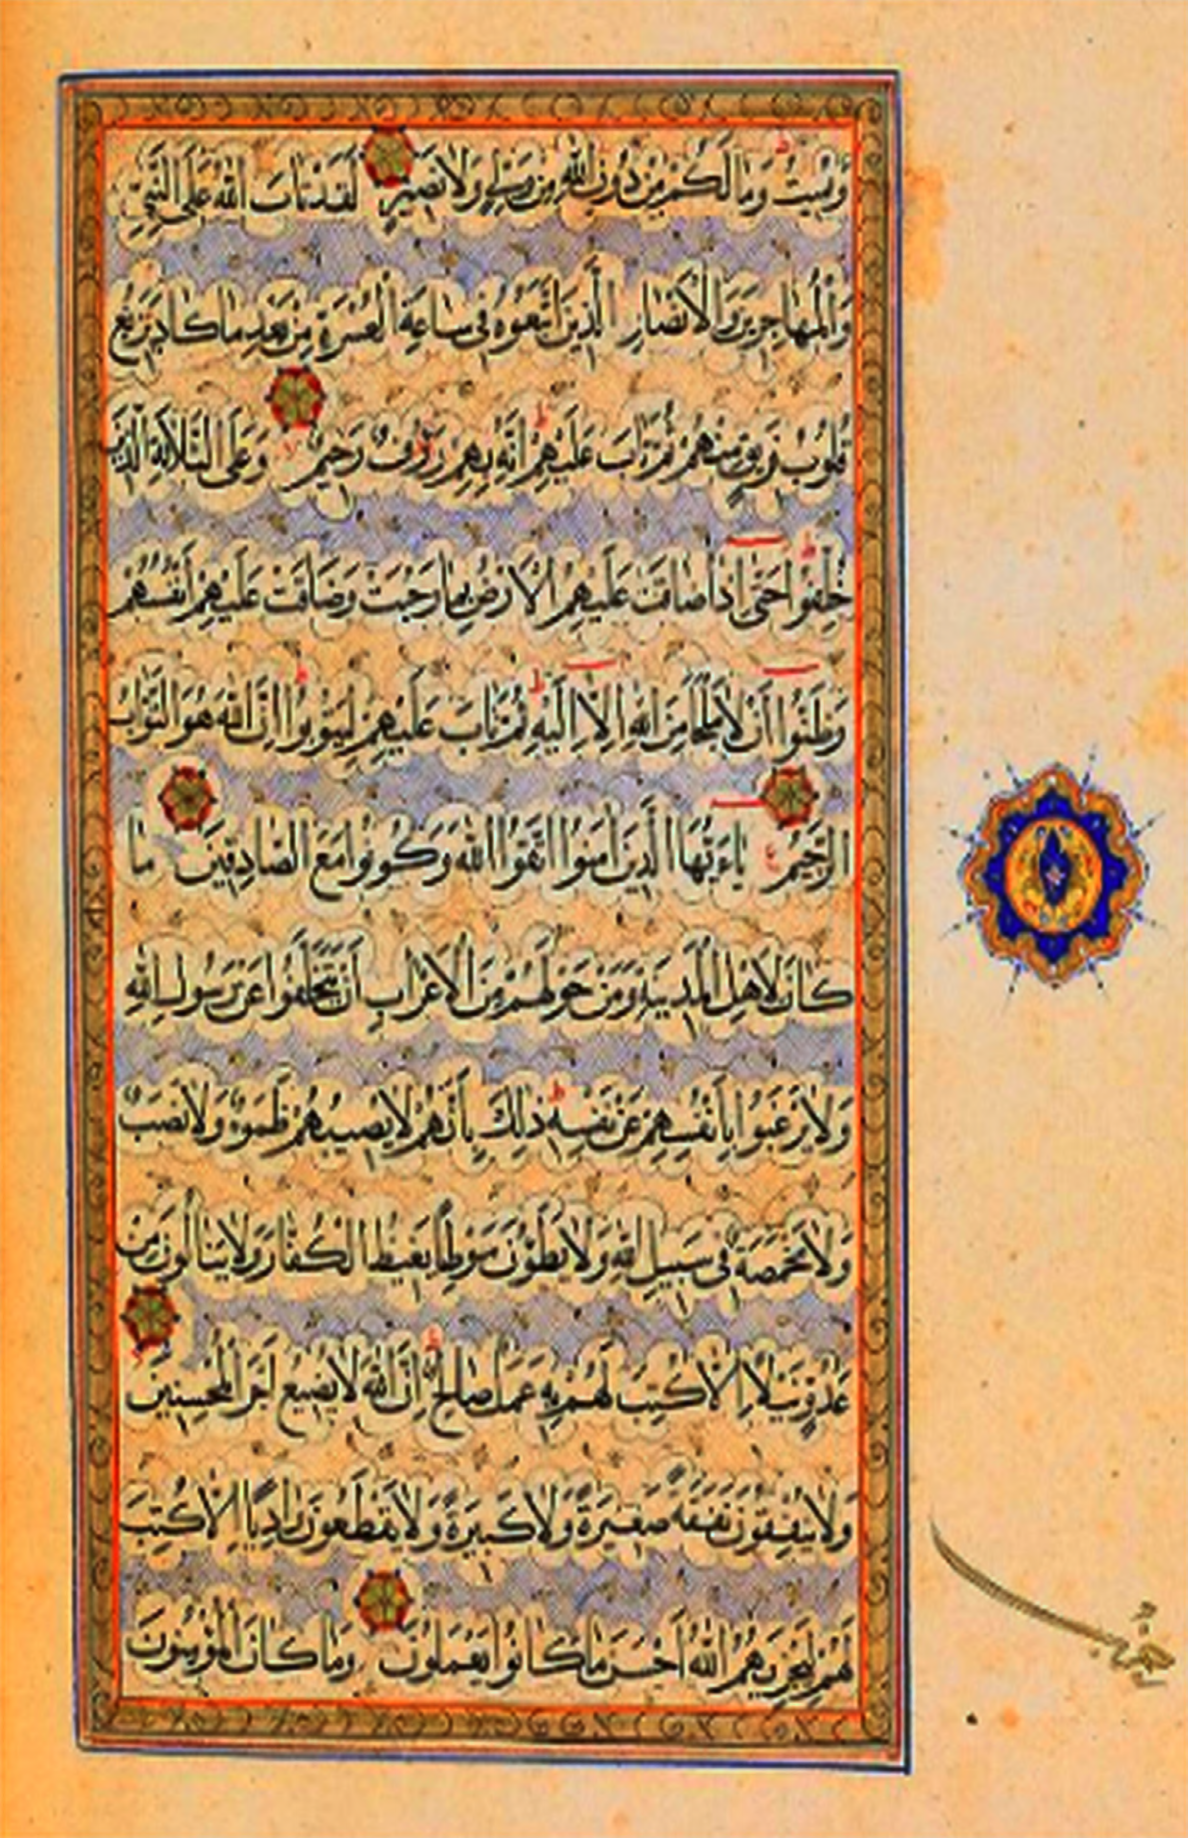 وَيُمِيتُ وَمَا لَكُمْ مِنْ دُونِ اللّٰهِ مِنْ وَلِيٍّ وَلَا نَصِيرٍ لَقَدْ تَابَ اللّٰهُ عَلَى النَّبِيِّ
وَالْمُهَاجِرِينَ وَالْأَنْصَارِ الَّذِينَ اتَّبَعُوهُ فِي سَاعَةِ الْعُسْرَةِ مِنْ بَعْدِ مَا كَادَ يَزِيغُ
قُلُوبُ فَرِيقٍ مِنْهُمْ ثُمَّ تَابَ عَلَيْهِمْ إِنَّهُ بِهِمْ رَؤُفٌ رَحِيمٌ وَعَلَى الثَّلَاثَةِ الَّذِينَ
خُلِّفُوا حَتَّى إِذَا ضَاقَتْ عَلَيْهِمُ الْأَرْضُ بِمَا رَحُبَتْ وَضَاقَتْ عَلَيْهِمْ أَنْفُسُهُمْ
وَظَنُّوا أَنْ لَا مَلْجَأَ مِنَ اللّٰهِ إِلَّا إِلَيْهِ ثُمَّ تَابَ عَلَيْهِمْ لِيَتُوبُوا إِنَّ اللّٰهَ هُوَ التَّوَّابُ
الرَّحِيمُ يَاءَيُّهَا الَّذِينَ اٰمَنُوا اتَّقُوا اللّٰهَ وَكُونُوا مَعَ الصَّادِقِينَ مَا
كَانَ لِأَهْلِ الْمَدِينَةِ وَمَنْ حَوْلَهُمْ مِنَ الْأَعْرَابِ أَنْ يَتَخَلَّفُوا عَنْ رَسُولِ اللّٰهِ
وَلَا يَرْغَبُوا بِأَنْفُسِهِمْ عَنْ نَفْسِهِ ذٰلِكَ بِأَنَّهُمْ لَا يُصِيبُهُمْ ظَمَؤٌ وَلَا نَصَبٌ
وَلَا مَخْمَصَةٌ فِي سَبِيلِ اللّٰهِ وَلَا يَطَؤُنَ مَوْطِئًا يَغِيظُ الْكُفَّارَ وَلَا يَنَالُونَ مِنْ
عَدُوٍّ نَيْلًا إِلَّا كُتِبَ لَهُمْ بِهِ عَمَلٌ صَالِحٌ إِنَّ اللّٰهَ لَا يُضِيعُ أَجْرَ الْمُحْسِنِينَ
وَلَا يُنْفِقُونَ نَفَقَةً صَغِيرَةً وَلَا كَبِيرَةً وَلَا يَقْطَعُونَ وَادِيًا إِلَّا كُتِبَ
لَهُمْ لِيَجْزِيَهُمُ اللّٰهُ أَحْسَنَ مَا كَانُوا يَعْمَلُونَ وَمَا كَانَ الْمُؤْمِنُونَ